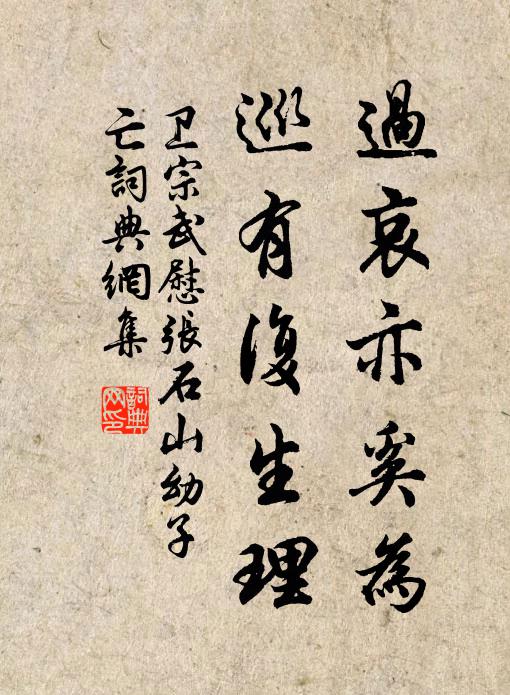 過哀亦奚為
巡有復生理
卫宗武慰張石山幼子
亡詞典網集
詞典
网印